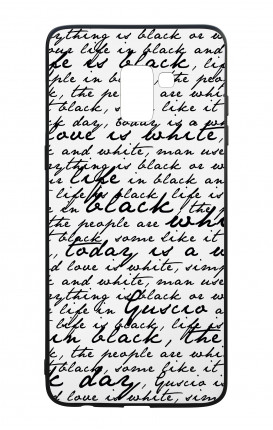 ything is black or w
our life in black and
fe is black, life
ple in b the peo
k, the p are whi
t black, so like it
k day, today is a wo
love is white,
and white, man use
ything is black or w
r life in black an
life is black, life is
e in black, the
the people are whi
black, some like it
, today is a w
d love is white, simp
and white, man us
ything is black or w
r life in Guscio a
life is black, life is
in black, the
k, the people are whi
t black, some like it
k day, Guscio is
s love is white, sim